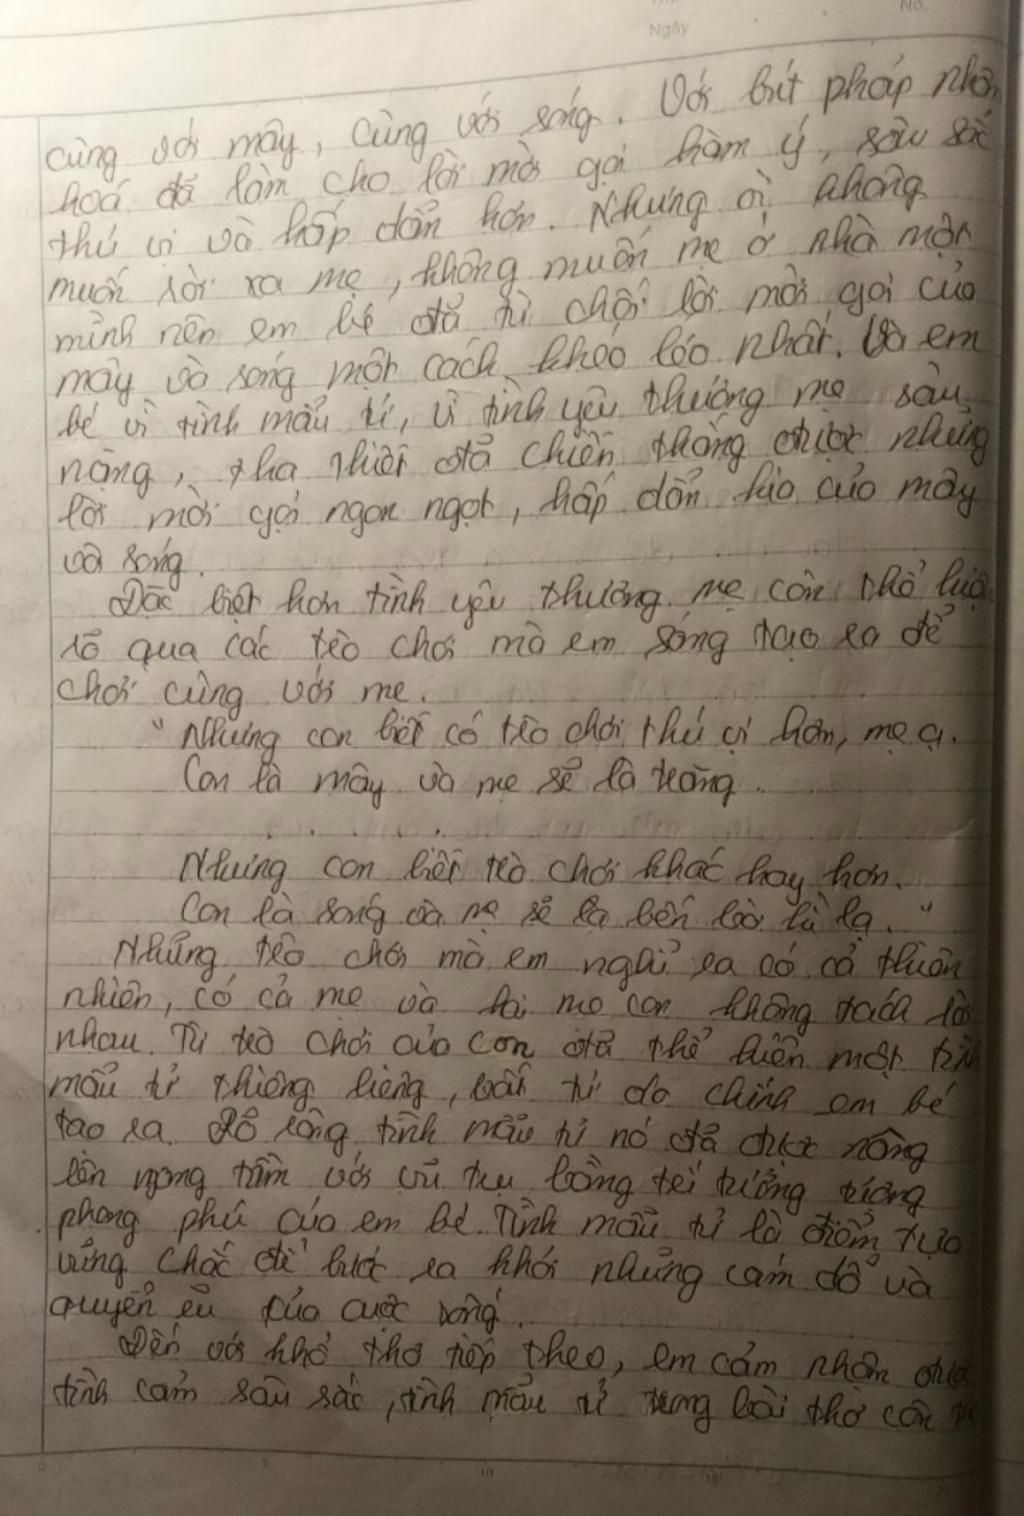 Ngày
No.
cùng với mây, cùng với sóng. Với bút pháp nhân
hoá đã làm cho lời mời gọi hàm ý, sâu sắc
thú vị và hấp dẫn hơn. Nhưng vì không
muốn rời xa mẹ, không muốn mẹ ở nhà một
mình nên em bé đã từ chối lời mời gọi của
mây và sóng một cách khéo léo nhất. Và em
bé vì tình mẫu tử, vì tình yêu thương mẹ sâu
nặng, tha thiết đã chiến thắng được những
lời mời gọi ngon ngọt, hấp dẫn của mây
và sóng.
Đặc biệt hơn tình yêu thương mẹ còn thể hiện
rõ qua các trò chơi mà em sáng tạo ra để
chơi cùng với mẹ.
"Nhưng con biết có trò chơi thú vị hơn, mẹ ạ.
Con là mây và mẹ sẽ là trăng.
. . . .
Nhưng con biết trò chơi khác hay hơn.
Con là sóng và mẹ sẽ là bến bờ kì lạ."
Những trò chơi mà em nghĩ ra có cả thiên
nhiên, có cả mẹ và hai mẹ con không tách rời
nhau. Từ trò chơi của con đã thể hiện một tình
mẫu tử thiêng liêng, bất tử do chính em bé
tạo ra. Rõ ràng tình mẫu tử nó đã được nâng
lên ngang tầm với vũ trụ bằng trí tưởng tượng
phong phú của em bé. Tình mẫu tử là điểm tựa
vững chắc để bước ra khỏi những cám dỗ và
quyến rũ của cuộc sống.
Đến với khổ thơ tiếp theo, em cảm nhận được
tình cảm sâu sắc, tình mẫu tử trong bài thơ còn